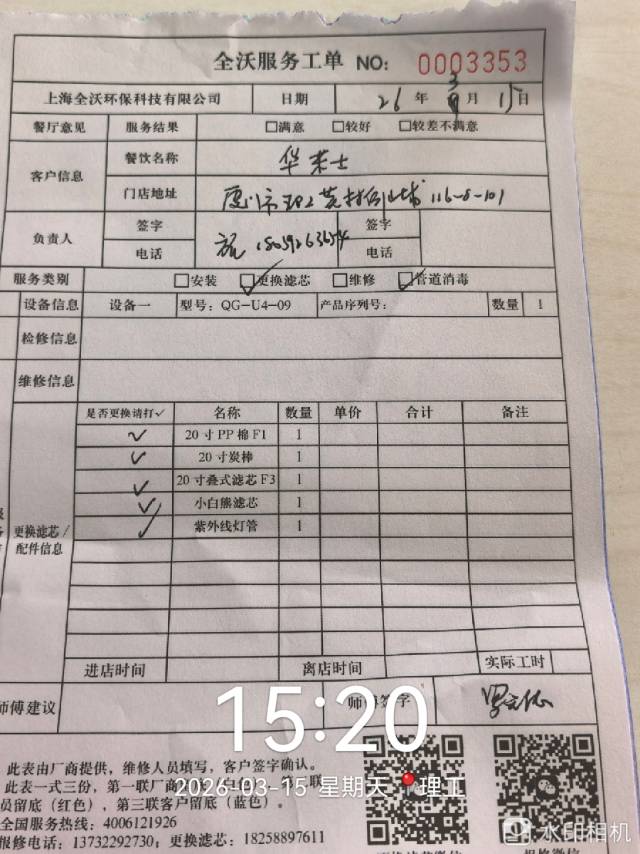 全沃服务工单 NO: 0003353
上海全沃环保科技有限公司 日期 26 年 3 月 15 日
餐厅意见 服务结果 □满意 □较好 □较差不满意
客户信息 餐饮名称 华莱士
门店地址 116-8-101
负责人 签字 签字
电话 电话
服务类别 □安装 □更换滤芯 □维修 □管道消毒
设备信息 设备一 型号: QG-U4-09 产品序列号: 数量 1
检修信息
维修信息
是否更换请打✓ 名称 数量 单价 合计 备注
✓ 20寸PP棉F1 1
✓ 20寸炭棒 1
✓ 20寸叠式滤芯F3 1
✓ 小白熊滤芯 1
✓ 紫外线灯管 1
更换滤芯/
配件信息
进店时间 离店时间 实际工时
师傅建议 师傅签字
15:20
2026-03-15 星期天 理工
此表由厂商提供，维修人员填写，客户签字确认。
此表一式三份，第一联厂商
员留底（红色），第三联客户留底（蓝色）。
全国服务热线: 4006121926
报修电话: 13732292730; 更换滤芯: 18258897611
水印相机